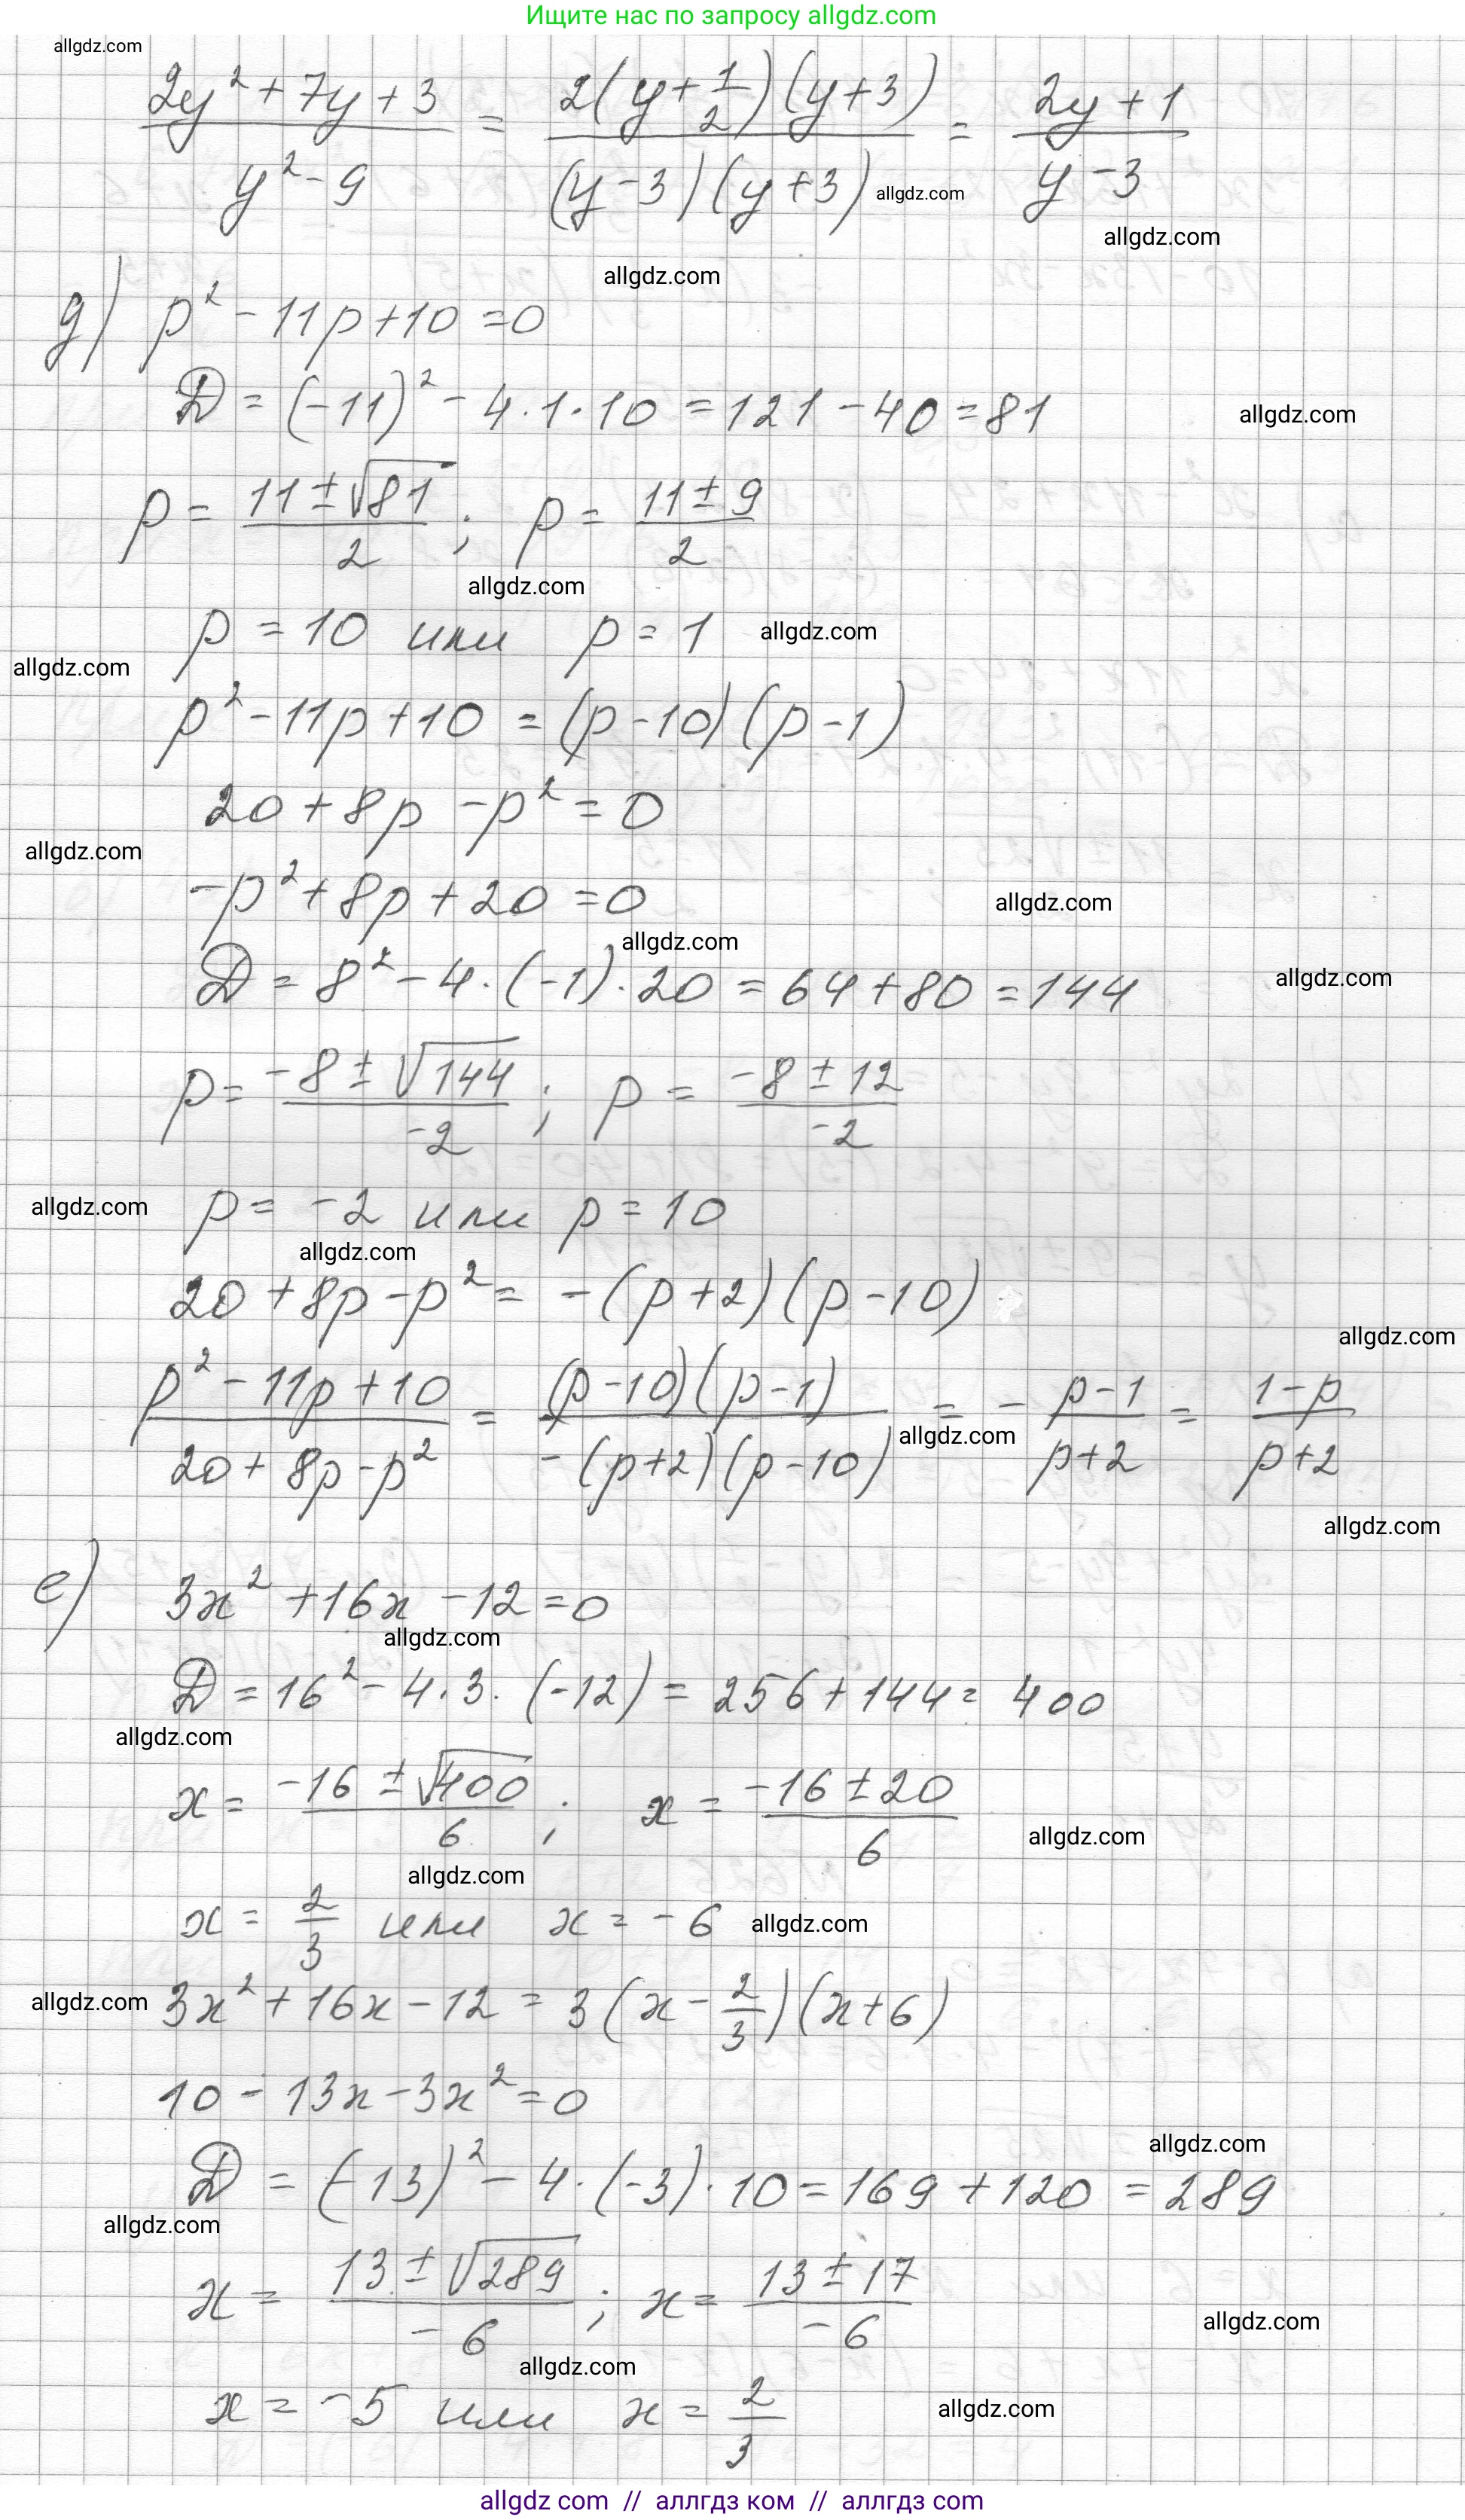 Ищите нас по запросу allgdz.com
allgdz.com
(2y² + 7y + 3)/(y² - 9) = (2(y + 1/2)(y + 3))/((y - 3)(y + 3)) = (2y + 1)/(y - 3)
allgdz.com
allgdz.com
allgdz.com
д) p² - 11p + 10 = 0
D = (-11)² - 4 · 1 · 10 = 121 - 40 = 81
allgdz.com
p = (11 ± √81)/2 ; p = (11 ± 9)/2
allgdz.com
p = 10 или p = 1
allgdz.com
allgdz.com
p² - 11p + 10 = (p - 10)(p - 1)
20 + 8p - p² = 0
allgdz.com
-p² + 8p + 20 = 0
allgdz.com
allgdz.com
D = 8² - 4 · (-1) · 20 = 64 + 80 = 144
allgdz.com
p = (-8 ± √144)/-2 ; p = (-8 ± 12)/-2
allgdz.com
p = -2 или p = 10
allgdz.com
20 + 8p - p² = -(p + 2)(p - 10)
allgdz.com
(p² - 11p + 10)/(20 + 8p - p²) = ((p - 10)(p - 1))/(-(p + 2)(p - 10)) = - (p - 1)/(p + 2) = (1 - p)/(p + 2)
allgdz.com
allgdz.com
е) 3x² + 16x - 12 = 0
allgdz.com
D = 16² - 4 · 3 · (-12) = 256 + 144 = 400
allgdz.com
x = (-16 ± √400)/6 ; x = (-16 ± 20)/6
allgdz.com
allgdz.com
x = 2/3 или x = -6
allgdz.com
allgdz.com
3x² + 16x - 12 = 3(x - 2/3)(x + 6)
10 - 13x - 3x² = 0
allgdz.com
D = (-13)² - 4 · (-3) · 10 = 169 + 120 = 289
allgdz.com
x = (13 ± √289)/-6 ; x = (13 ± 17)/-6
allgdz.com
allgdz.com
x = -5 или x = 2/3
allgdz.com
allgdz com // аллгдз ком // allgdz com